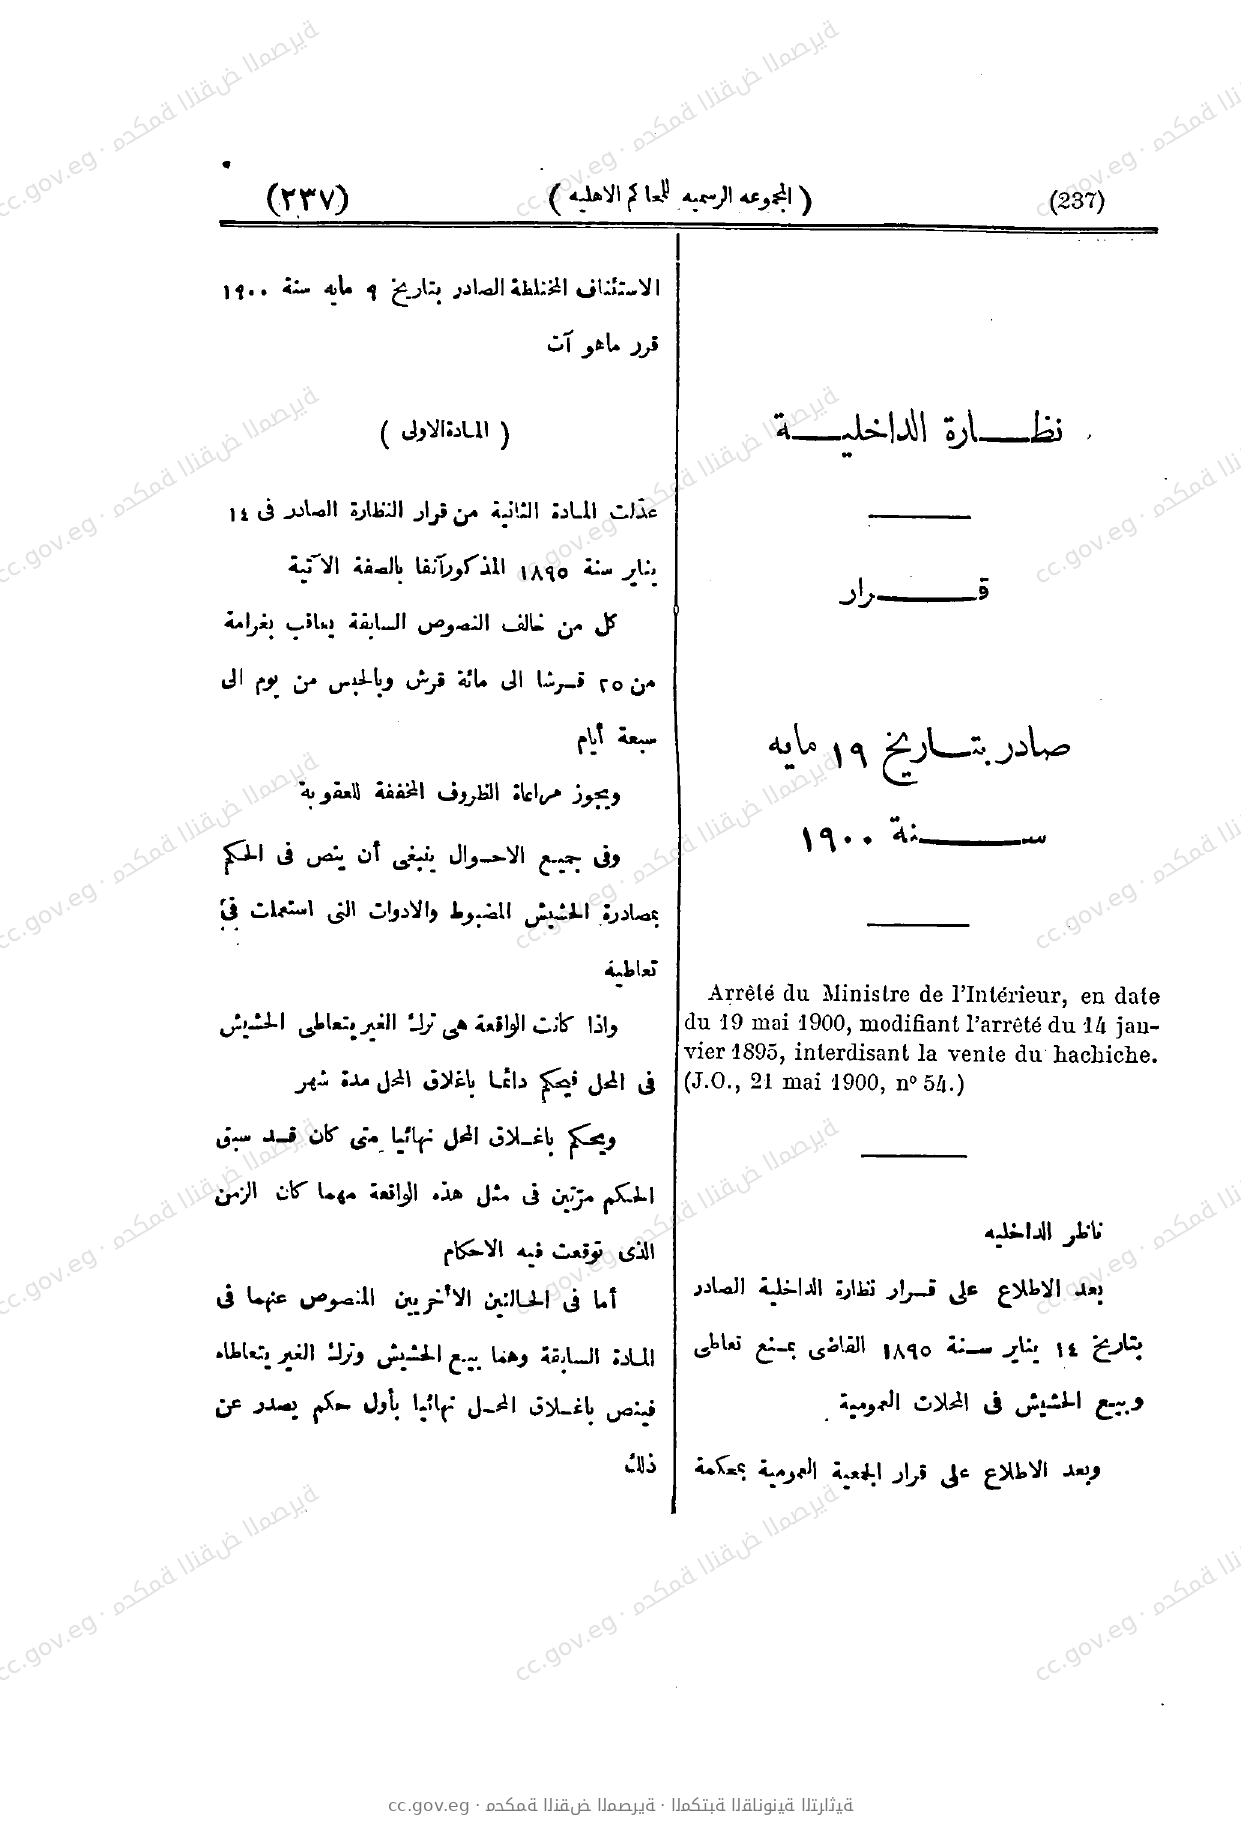 (237) ( المجموعه الرسميه للمحاكم الاهليه ) (٢٣٧)
نظـــارة الداخليـــة
قـــــرار
صادر بتـاريخ ١٩ مايه
ســـــنة ١٩٠٠
Arrêté du Ministre de l'Intérieur, en date
du 19 mai 1900, modifiant l'arrêté du 14 jan-
vier 1895, interdisant la vente du hachiche.
(J.O., 21 mai 1900, n° 54.)
ناظر الداخليه
بعد الاطلاع على قـرار نظارة الداخلية الصادر
بتاريخ ١٤ يناير سـنة ١٨٩٥ القاضى بمنع تعاطى
وبيع الحشيش فى المحلات العمومية
وبعد الاطلاع على قرار الجمعية العمومية بمحكمة
الاستئناف المختلطة الصادر بتاريخ ٩ مايه سنة ١٩٠٠
قرر ماهو آت
( المادة الاولى )
عدّلت المادة الثانية من قرار النظارة الصادر فى ١٤
يناير سنة ١٨٩٥ المذكور آنفا بالصفة الآتية
كل من خالف النصوص السابقة يعاقب بغرامة
من ٢٥ قـرشا الى مائة قرش وبالحبس من يوم الى
سبعة أيام
ويجوز مراعاة الظروف المخففة للعقوبة
وفى جميـع الاحـوال ينبغى أن ينص فى الحكم
بمصادرة الحشيش المضبوط والادوات التى استعملت فى
تعاطيه
واذا كانت الواقعة هى ترك الغير يتعاطى الحشيش
فى المحل فيحكم دائما باغلاق المحل مدة شهر
ويحكم باغـلاق المحل نهائيا متى كان قـد سبق
الحكم مرّتين فى مثل هذه الواقعة مهما كان الزمن
الذى توقعت فيه الاحكام
أما فى الحـالتين الأخريين المنصوص عنهما فى
المادة السابقة وهما بيـع الحشيش وترك الغير يتعاطاه
فينص باغـلاق المحـل نهائيا بأول حكم يصدر عن
ذلك
cc.gov.eg · محكمة النقض المصرية · المكتبة القانونية التراثية